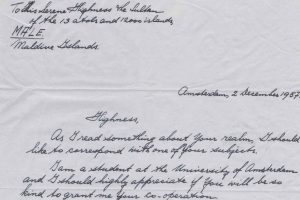 To His Serene Highness the Sultan
of the 13 atols and 12000 islands
MALE.
Maldive Islands.
Amsterdam, 2 December 1957.
Highness,
As I read something about Your realm, I should
like to correspond with one of your subjects.
I am a student at the University of Amsterdam
and I should highly appreciate if You will be so
kind to grant me Your co-operation.